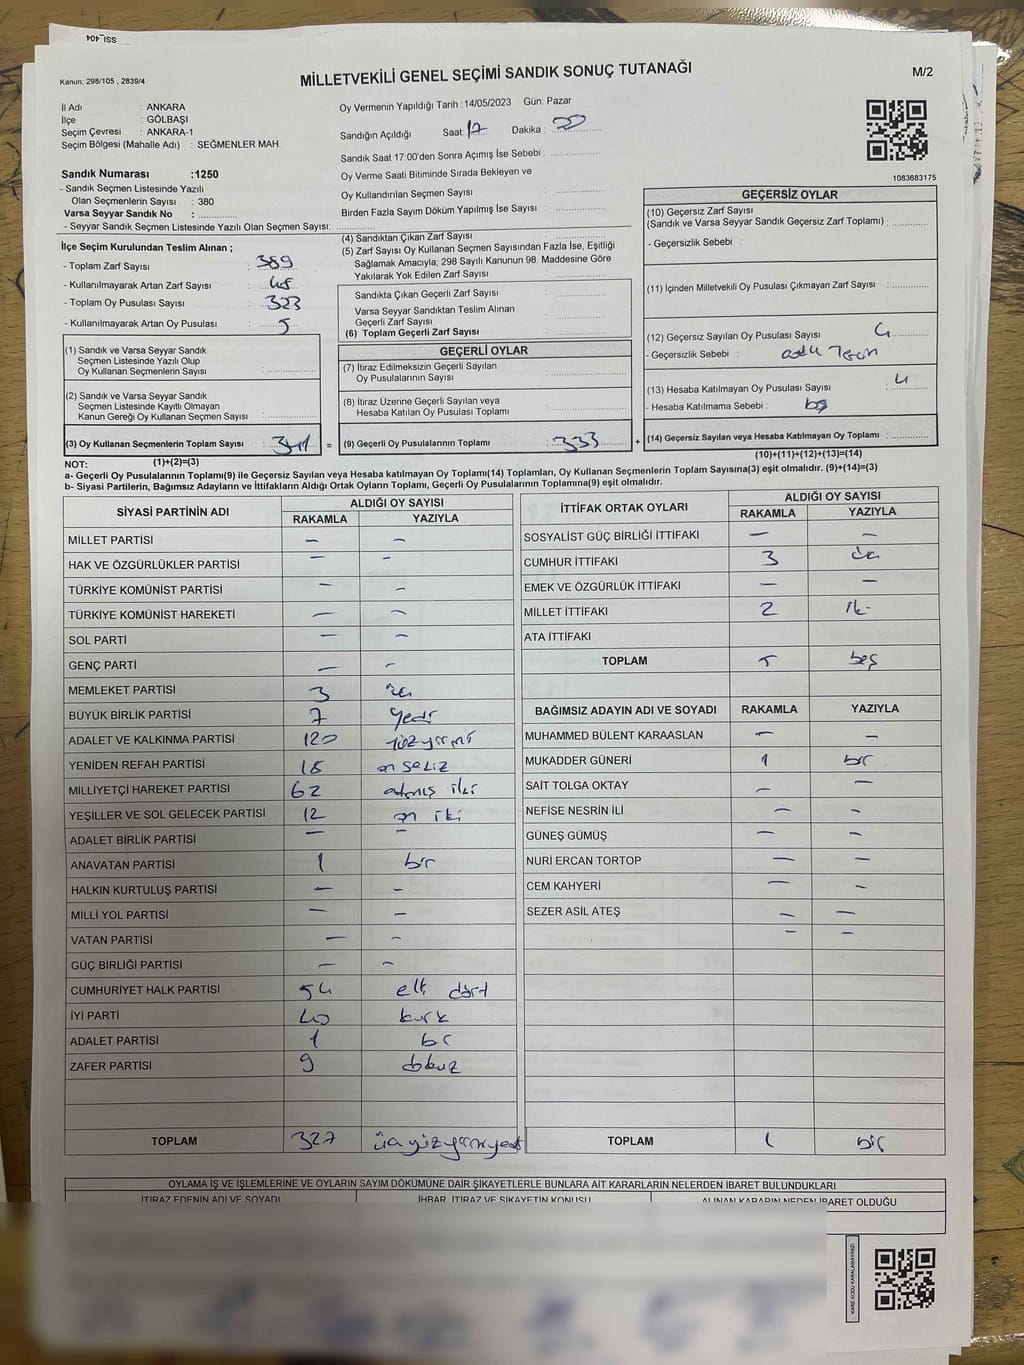 SSI_404
Kanun: 298/105 , 2839/4
MİLLETVEKİLİ GENEL SEÇİMİ SANDIK SONUÇ TUTANAĞI
M/2
İl Adı : ANKARA
İlçe : GÖLBAŞI
Seçim Çevresi : ANKARA-1
Seçim Bölgesi (Mahalle Adı) : SEĞMENLER MAH.
Oy Vermenin Yapıldığı Tarih :14/05/2023 Gün: Pazar
Sandığın Açıldığı Saat: 17 Dakika :
Sandık Saat 17:00'den Sonra Açımış İse Sebebi :
Oy Verme Saati Bitiminde Sırada Bekleyen ve
Oy Kullandırılan Seçmen Sayısı :
Birden Fazla Sayım Döküm Yapılmış İse Sayısı :
1083683175
Sandık Numarası :1250
- Sandık Seçmen Listesinde Yazılı
Olan Seçmenlerin Sayısı : 380
Varsa Seyyar Sandık No :
- Seyyar Sandık Seçmen Listesinde Yazılı Olan Seçmen Sayısı:
İlçe Seçim Kurulundan Teslim Alınan ;
- Toplam Zarf Sayısı : 389
- Kullanılmayarak Artan Zarf Sayısı : 48
- Toplam Oy Pusulası Sayısı : 323
- Kullanılmayarak Artan Oy Pusulası : 5
(1) Sandık ve Varsa Seyyar Sandık
Seçmen Listesinde Yazılı Olup
Oy Kullanan Seçmenlerin Sayısı :
(2) Sandık ve Varsa Seyyar Sandık
Seçmen Listesinde Kayıtlı Olmayan
Kanun Gereği Oy Kullanan Seçmen Sayısı :
(3) Oy Kullanan Seçmenlerin Toplam Sayısı : 341 =
(1)+(2)=(3)
(4) Sandıktan Çıkan Zarf Sayısı :
(5) Zarf Sayısı Oy Kullanan Seçmen Sayısından Fazla İse, Eşitliği
Sağlamak Amacıyla; 298 Sayılı Kanunun 98. Maddesine Göre
Yakılarak Yok Edilen Zarf Sayısı :
Sandıkta Çıkan Geçerli Zarf Sayısı :
Varsa Seyyar Sandıktan Teslim Alınan
Geçerli Zarf Sayısı :
(6) Toplam Geçerli Zarf Sayısı :
GEÇERLİ OYLAR
(7) İtiraz Edilmeksizin Geçerli Sayılan
Oy Pusulalarının Sayısı :
(8) İtiraz Üzerine Geçerli Sayılan veya
Hesaba Katılan Oy Pusulası Toplamı :
(9) Geçerli Oy Pusulalarının Toplamı : 333 +
GEÇERSİZ OYLAR
(10) Geçersiz Zarf Sayısı
(Sandık ve Varsa Seyyar Sandık Geçersiz Zarf Toplamı) :
- Geçersizlik Sebebi :
(11) İçinden Milletvekili Oy Pusulası Çıkmayan Zarf Sayısı :
(12) Geçersiz Sayılan Oy Pusulası Sayısı : 4
- Geçersizlik Sebebi :
(13) Hesaba Katılmayan Oy Pusulası Sayısı : 4
- Hesaba Katılmama Sebebi : boş
(14) Geçersiz Sayılan veya Hesaba Katılmayan Oy Toplamı :
(10)+(11)+(12)+(13)=(14)
NOT:
a- Geçerli Oy Pusulalarının Toplamı(9) ile Geçersiz Sayılan veya Hesaba katılmayan Oy Toplamı(14) Toplamları, Oy Kullanan Seçmenlerin Toplam Sayısına(3) eşit olmalıdır. (9)+(14)=(3)
b- Siyasi Partilerin, Bağımsız Adayların ve İttifakların Aldığı Ortak Oyların Toplamı, Geçerli Oy Pusulalarının Toplamına(9) eşit olmalıdır.
SİYASİ PARTİNİN ADI ALDIĞI OY SAYISI
RAKAMLA YAZIYLA
MİLLET PARTİSİ — —
HAK VE ÖZGÜRLÜKLER PARTİSİ — —
TÜRKİYE KOMÜNİST PARTİSİ — —
TÜRKİYE KOMÜNİST HAREKETİ — —
SOL PARTİ — —
GENÇ PARTİ — —
MEMLEKET PARTİSİ 3 üç
BÜYÜK BİRLİK PARTİSİ 7 yedi
ADALET VE KALKINMA PARTİSİ 120 yüzyirmi
YENİDEN REFAH PARTİSİ 18 on sekiz
MİLLİYETÇİ HAREKET PARTİSİ 62 atmış iki
YEŞİLLER VE SOL GELECEK PARTİSİ 12 on iki
ADALET BİRLİK PARTİSİ — —
ANAVATAN PARTİSİ 1 bir
HALKIN KURTULUŞ PARTİSİ — —
MİLLİ YOL PARTİSİ — —
VATAN PARTİSİ — —
GÜÇ BİRLİĞİ PARTİSİ — —
CUMHURİYET HALK PARTİSİ 54 elli dört
İYİ PARTİ 40 kırk
ADALET PARTİSİ 1 bir
ZAFER PARTİSİ 9 dokuz
TOPLAM 327 üçyüzyirmiyedi
İTTİFAK ORTAK OYLARI ALDIĞI OY SAYISI
RAKAMLA YAZIYLA
SOSYALİST GÜÇ BİRLİĞİ İTTİFAKI — —
CUMHUR İTTİFAKI 3 üç
EMEK VE ÖZGÜRLÜK İTTİFAKI — —
MİLLET İTTİFAKI 2 iki
ATA İTTİFAKI
TOPLAM 5 beş
BAĞIMSIZ ADAYIN ADI VE SOYADI RAKAMLA YAZIYLA
MUHAMMED BÜLENT KARAASLAN — —
MUKADDER GÜNERİ 1 bir
SAİT TOLGA OKTAY — —
NEFİSE NESRİN İLİ — —
GÜNEŞ GÜMÜŞ — —
NURİ ERCAN TORTOP — —
CEM KAHYERİ — —
SEZER ASİL ATEŞ — —
— —
TOPLAM 1 bir
OYLAMA İŞ VE İŞLEMLERİNE VE OYLARIN SAYIM DÖKÜMÜNE DAİR ŞİKAYETLERLE BUNLARA AİT KARARLARIN NELERDEN İBARET BULUNDUKLARI
İTİRAZ EDENİN ADI VE SOYADI İHBAR, İTİRAZ VE ŞİKAYETİN KONUSU ALINAN KARARIN NEDEN İBARET OLDUĞU
KARE KODU KARALAMAYINIZ!